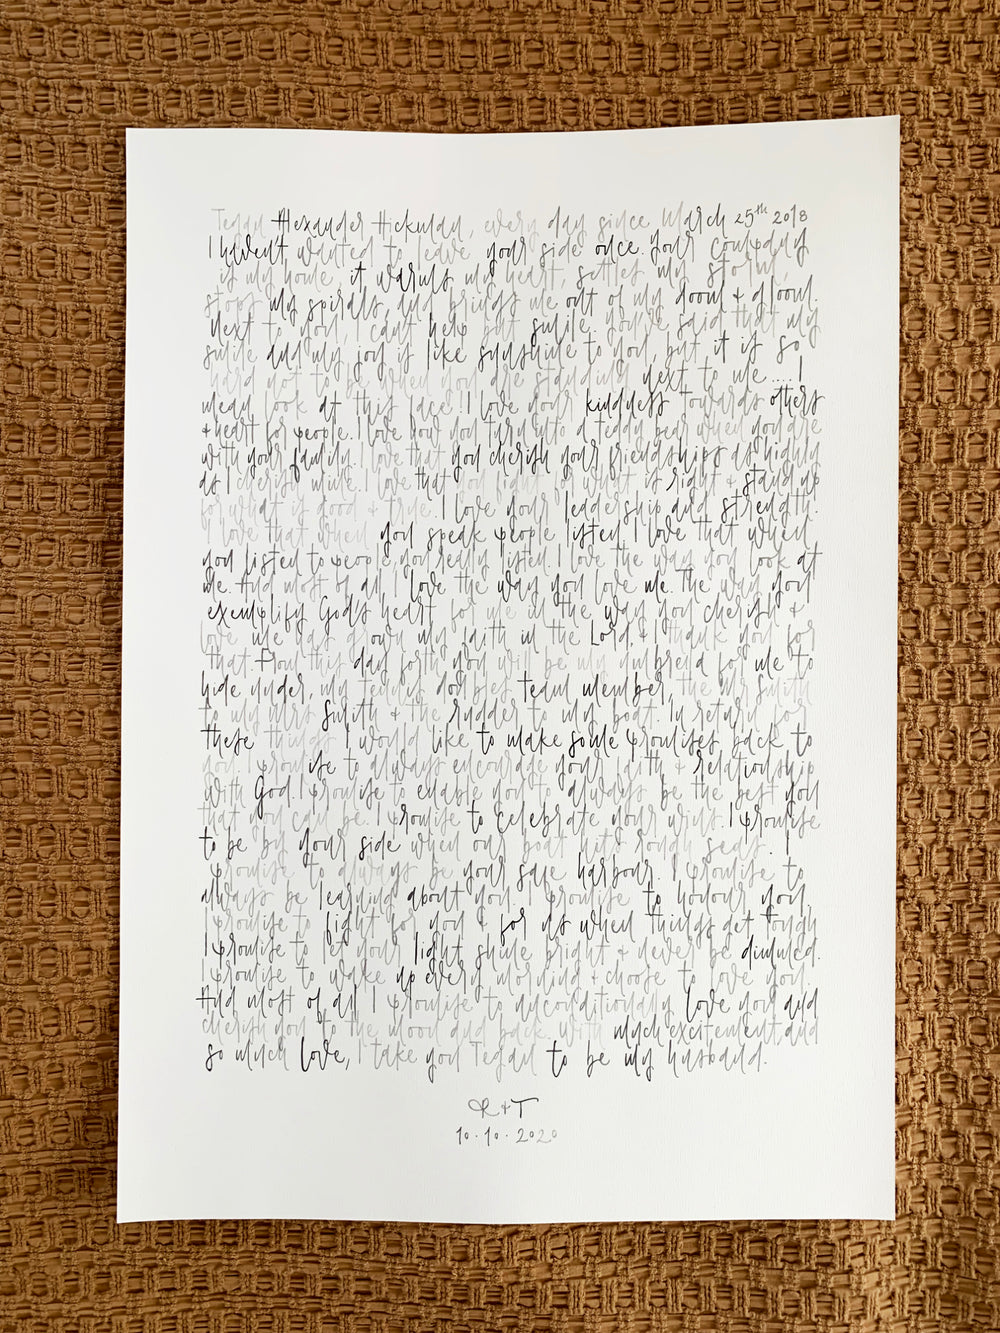 Tegan Alexander Hickman, every day since March 25th 2018
I haven't wanted to leave your side once. Your company
is my home, it warms my heart, settles my storm,
stops my spirals, and brings me out of my doom & gloom.
Next to you I can't help but smile. You've said that my
smile and my joy is like sunshine to you, but it is so
hard not to be when you are standing next to me... I
mean look at this face! I love your kindness towards others
& heart for people. I love how you turn into a teddy bear when you are
with your family. I love that you cherish your friendships as highly
as I cherish mine. I love that you fight for what is right & stand up
for what is good & true. I love your leadership and strength.
I love that when you speak people listen. I love that when
you listen to people, you really listen. I love the way you look at
me. And most of all, I love the way you love me. The way you
exemplify God's heart for me in the way you cherish &
love me has grown my faith in the Lord, & I thank you for
that. From this day forth you will be my umbrella for me to
hide under, my tennis doubles team member, the Mr Smith
to my Mrs Smith & the rudder to my boat. In return for
these things I would like to make some promises back to
you. I promise to always encourage your faith & relationship
with God. I promise to enable you to always be the best you
that you can be. I promise to celebrate your wins. I promise
to be by your side when our boat hits rough seas. I
promise to always be your safe harbour. I promise to
always be learning about you. I promise to honour you,
I promise to fight for you & for us when things get tough
I promise to let your light shine bright & never be dimmed.
I promise to wake up every morning & choose to love you.
And most of all I promise to unconditionally love you and
cherish you to the moon and back. With much excitement and
so much love, I take you Tegan to be my husband.
R & T
10.10.2020